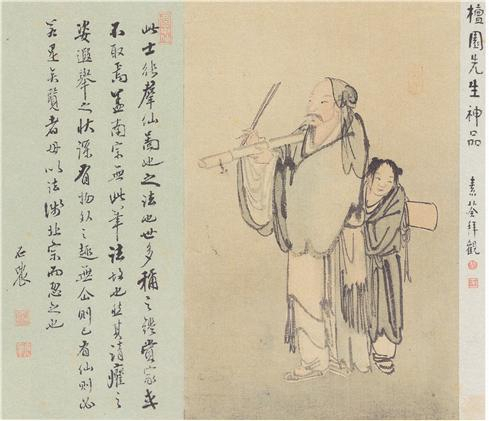 檀園先生神品
素荃拜觀
此士能羣仙圖也之法也世多稱之鑑賞家或
不取焉蓋南宗無此筆法故也然其清癯之
姿遐舉之狀深有物外之趣無仙則已有仙則必
若是矣覽者毋以法涉北宗而忽之也
石農